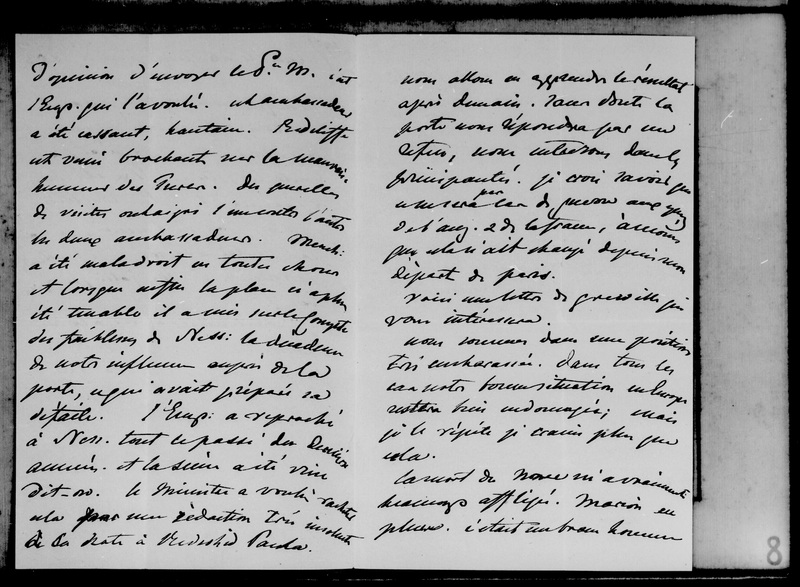 d'opinion d'envoyer le P.ce M. c'est
l'Emp. qui l'a voulu. cet ambassadeur
a été cassant, hautain. Redcliffe
est venu brochant sur la mauvaise
humeur des Turcs. Des querelles
de visites ont aigri l'un contre l'autre
les deux ambassadeurs. Mench:
a été maladroit en toutes choses
et lorsque enfin la place n'a plus
été tenable il a mis sur le compte
des faiblesses de Ness: la décadence
de notre influence auprès de la
porte, ce qui avait préparé sa
défaite. l'Emp: a reproché
à Ness. tout le passé des dernières
années. et la scène a été vive
dit-on. le Ministre a voulu racheter
cela par une rédaction très insolente
de sa note à Redschid Pacha.
nous allons en apprendre le résultat
après demain. sans doute la
porte nous répondra par un
refus, nous entrerons dans les
principautés. je crois savoir que
ce ne sera pas un cas de guerre aux yeux
de l'ang. & de la france, à moins
que cela n'ait changé depuis mon
départ de paris.
voici une lettre de greville qui
vous intéressera.
nous sommes dans une position
très embarassée. Dans tous les
cas notre bonne situation en Europe
restera bien endomagée; mais
je le répète je crains plus que
cela.
la mort de 
m'a vraiment
beaucoup affligée. Marion en
pleure. c'était un brave homme
8